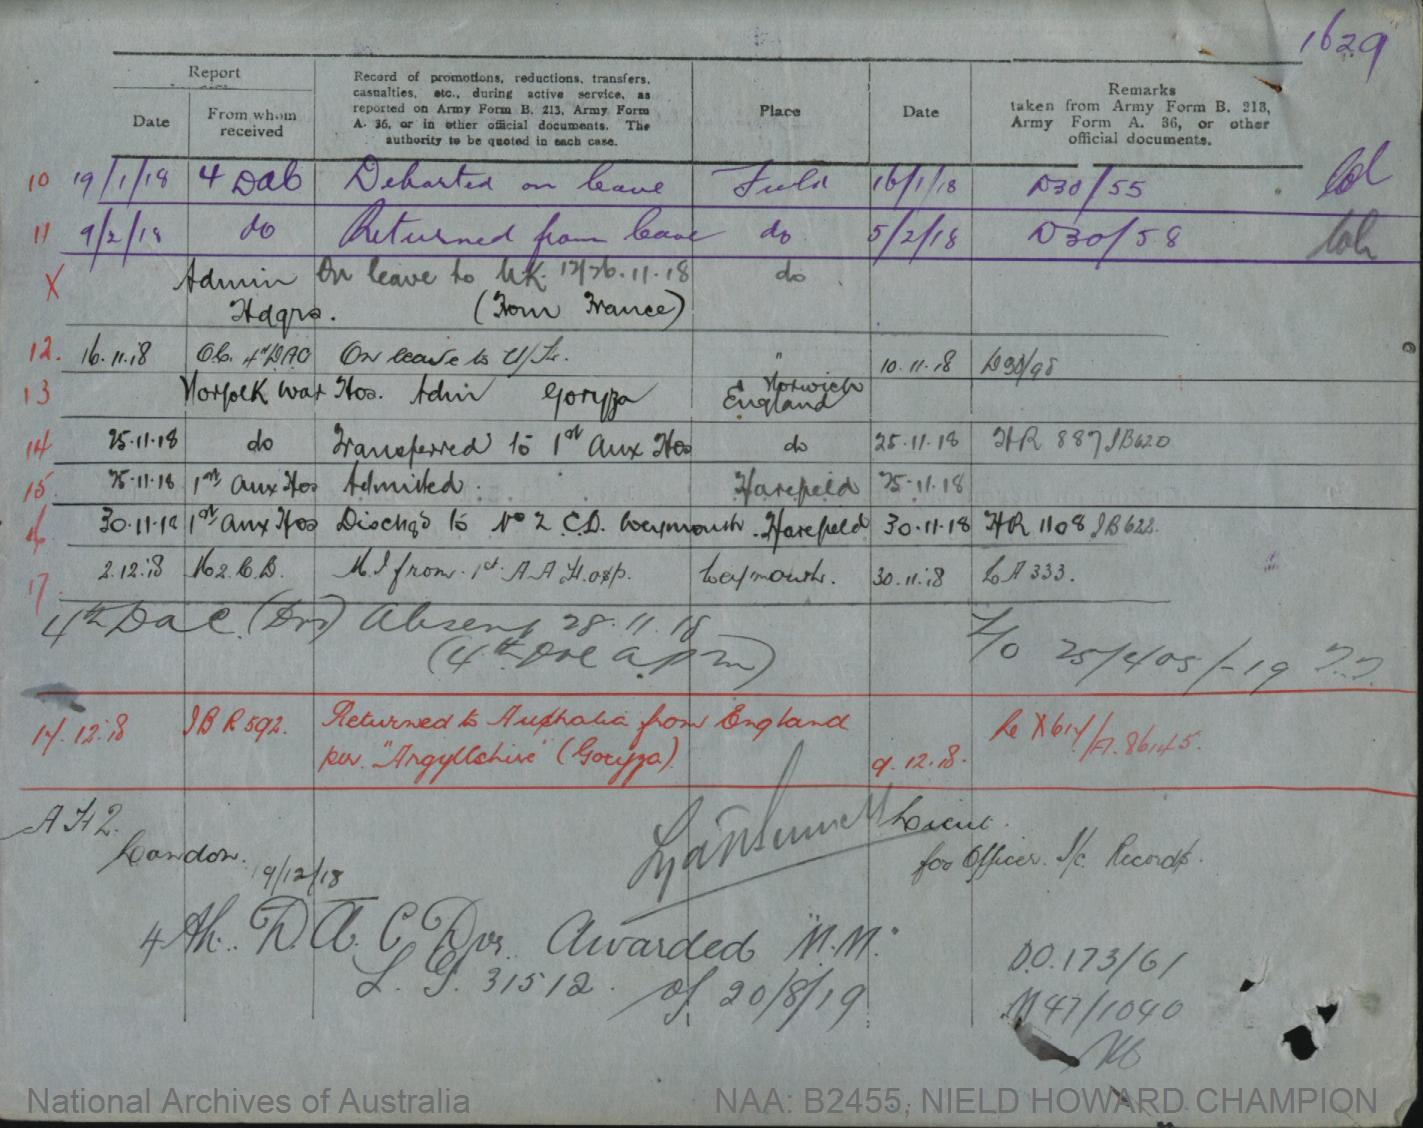 1629
Report
Date
From whom received
Record of promotions, reductions, transfers, casualties, etc., during active service, as reported on Army Form B. 213, Army Form A. 36, or in other official documents. The authority to be quoted in each case.
Place
Date
Remarks
taken from Army Form B. 213, Army Form A. 36, or other official documents.
10 19/1/18 4 DAC Departed on leave Field 16/1/18 D30/55
11 9/2/18 do Returned from leave do 5/2/18 D30/58
X Admin On leave to UK. 12/26.11.18 do
Hdqrs. (From France)
12. 16.11.18 O.C. 4th DAC On leave to U/K. " 10.11.18 D30/98
13 Norfolk War Hos. Adm Goryza Norwich
England
14 25.11.18 do Transferred to 1st Aux Hos do 25.11.18 HR 887 IB620
15. 25.11.18 1st Aux Hos Admitted. Harefield 25.11.18
16 30.11.18 1st Aux Hos Dischgd to No 2 C.D. Weymouth. Harefield 30.11.18 HR 1108 IB622.
17. 2.12.18 No 2. C.D. M.I from 1st A A Hosp. Weymouth. 30.11.18 LA 333.
4th DAC. (Dvr) Absent 28.11.18
(4th Dve a.p.m)
25/405/-19
17.12.18 IBR 592. Returned to Australia from England
per "Argyllshire" (Goryza). 9.12.18.
AH2. Lieut.
London. 9/12/18 for Officer I/c Records.
4th. D.A.C Dvr. Awarded "M.M."
L.G. 31512. of 20/8/19
D.O.173/61
M47/1040
National Archives of Australia
NAA: B2455, NIELD HOWARD CHAMPION